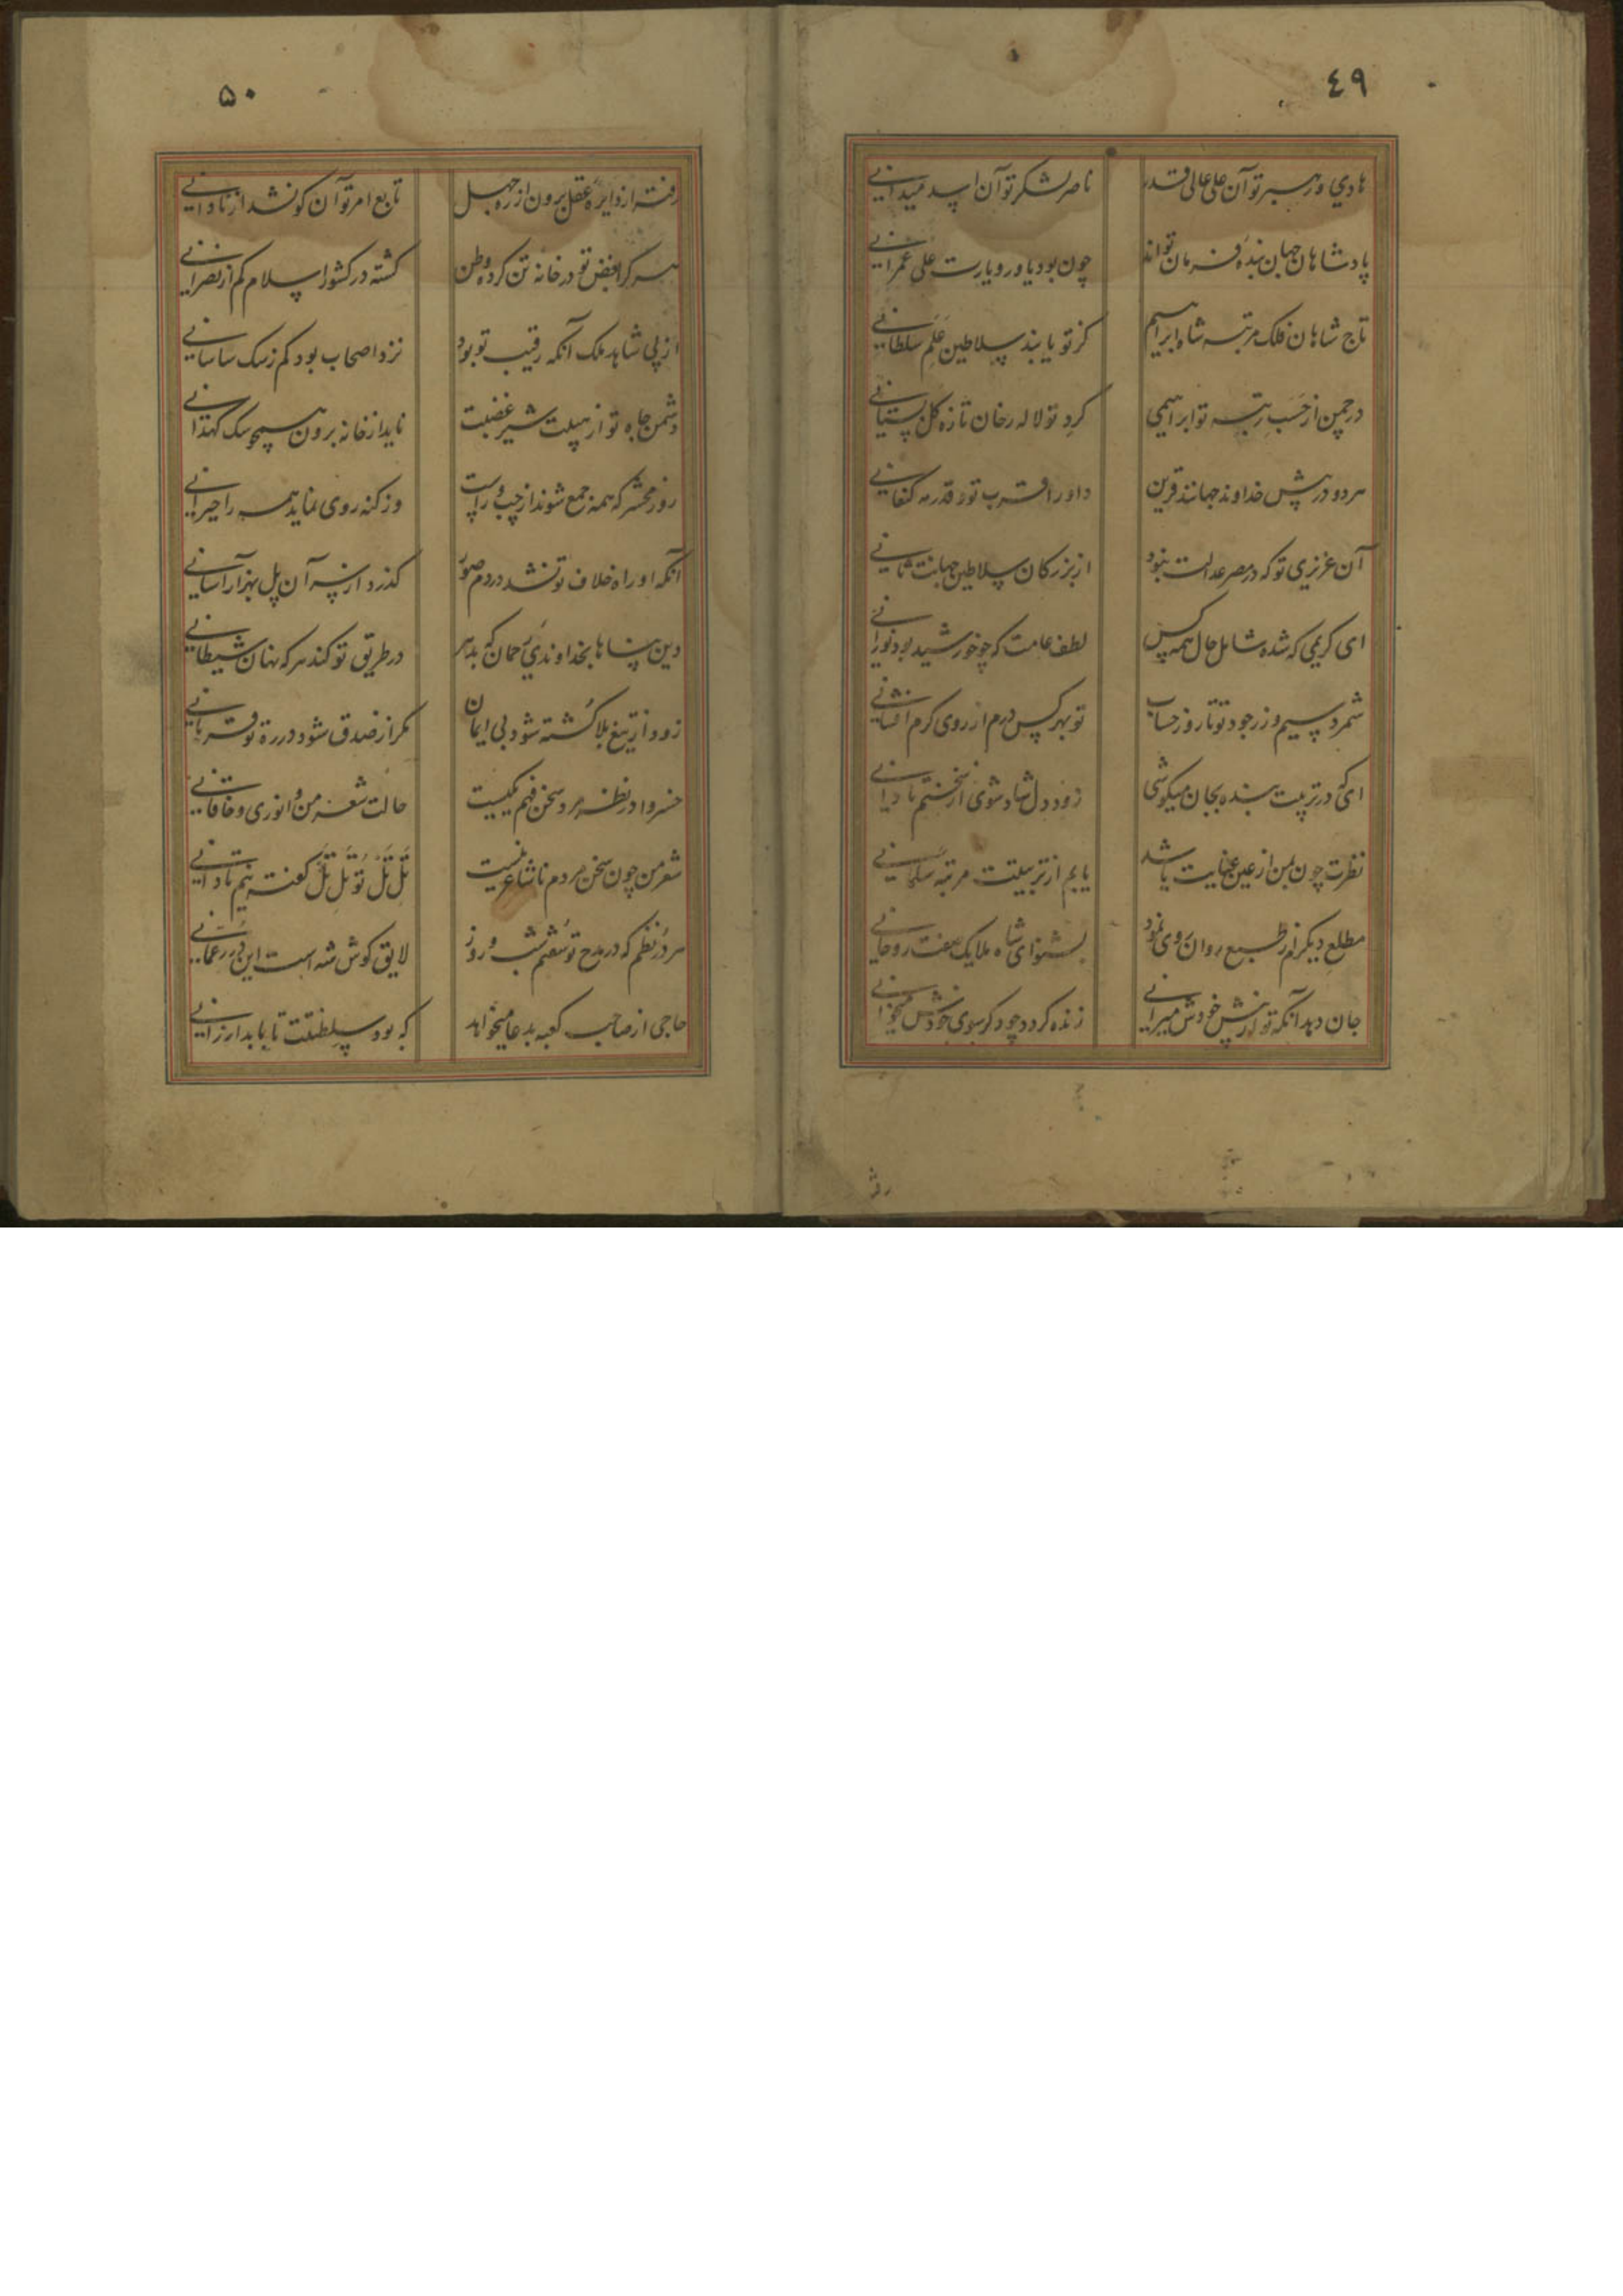 ٤٩
هادي و رهبر تو آن علی عالی قدر ناصر لشکر تو آن اسد میدانی
پادشاهان جهان بندهٔ فرمان تواند چون بود یاور و یارت علی عمرانی
تاج شاهان فلک مرتبه شاه ابراهیم کز تو یابند سلاطین علم سلطانی
در چمن از حسب رتبه تو ابراهیمی کرد تو لاله رخان تازه کل بستانی
هر دو در پیش خداوند جهانند قرین داور قرب تو و قدر مه کنعانی
آن عزیزی تو که در مصر عدالت نبود از بزرکان سلاطین جهانت ثانی
ای کریمی که شده شامل حال همه کس لطف عامت که چو خورشید بود نورانی
شمرد سیم و زر جود تو تا روز حساب تو بهر کس درم از روی کرم افشانی
ای که در تربیت بنده بجان میکوشی زود دل شاد شوی از سخنم تا دانی
نظرت چون بمن از عین عنایت باشد یابم از تربیتت مرتبه سلمانی
مطلع دیکرم از طبع روان روی نمود بشنو ای شاه ملایک صفت روحانی
جان دهد آنکه تو از پیش خودش میرانی زنده کردد چو دکر سوی خودش میخوانی
۵۰
رفته از دایرهٔ عقل برون از ره جهل تابع امر تو آن کو نشد از نادانی
هر کرا بغض تو در خانه تن کرده وطن کشته در کشور اسلام کم از نصرانی
از پی شاهد ملک آنکه رقیب تو بود نزد اصحاب بود کم ز سک ساسانی
دشمن جاه تو از هیبت شیر غضبت ناید از خانه برون همچو سک کهدانی
روز محشر که همه جمع شوند از چپ و راست وز کنه روی نماید همه را حیرانی
آنکه او راه خلاف تو نشد در دم صور کذرد از سر آن پل بهزار آسانی
دین پناها بخداوندي رحمان که بدهر در طریق تو کند هر که نهان شیطانی
زود از تیغ بلا کشته شود بی ایمان مکر از صدق شود در ره تو قربانی
خسروا در نظر مرد سخن فهم یکیست حالت شعر من و انوری و خاقانی
شعر من چون سخن مردم ناشاعر نیست تل تل تو تل تل کفته نیم تا دانی
هر در نظم که در مدح تو سفتم شب و روز لایق کوش شه است این درر عمانی
حاجی از صاحب کعبه بدعا میخواهد که بود سلطنتت تا بابد ارزانی